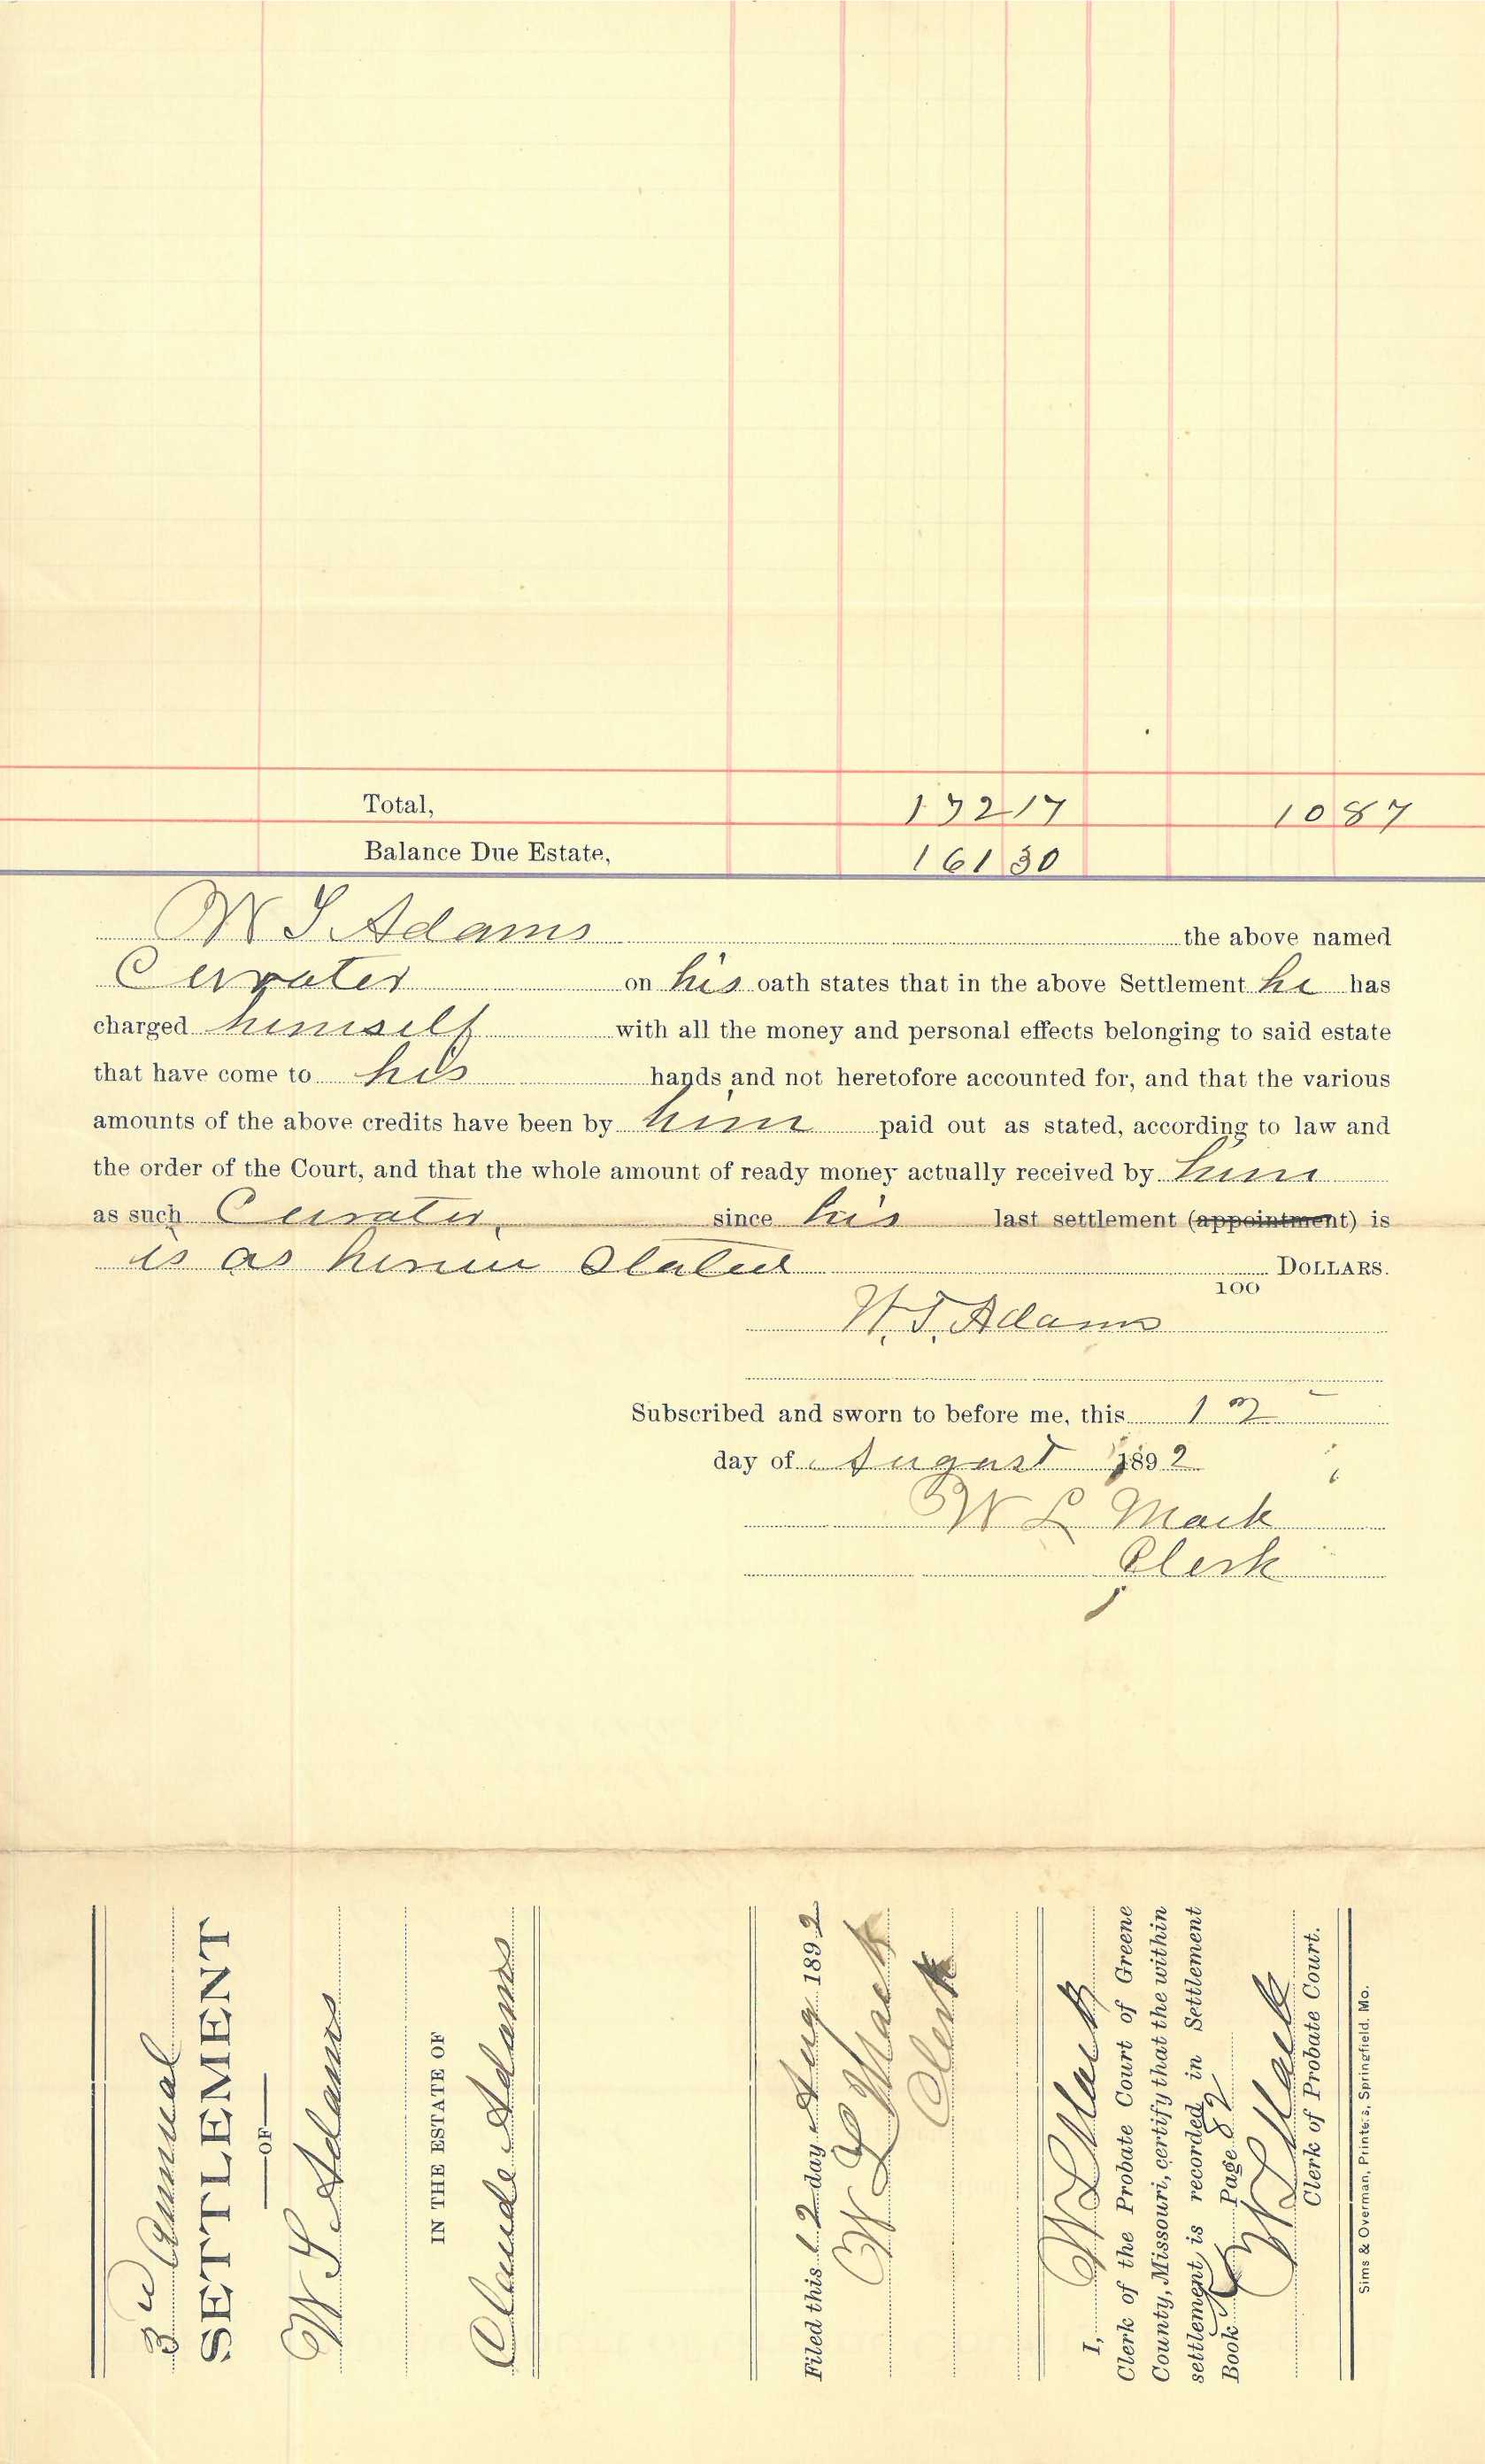 Total, 172 17 10 87
Balance Due Estate, 161 30
W S Adams the above named
Currater on his oath states that in the above Settlement he has
charged himself with all the money and personal effects belonging to said estate
that have come to his hands and not heretofore accounted for, and that the various
amounts of the above credits have been by him paid out as stated, according to law and
the order of the Court, and that the whole amount of ready money actually received by him
as such Curater, since his last settlement (appointment) is
is as herein Stated DOLLARS.
100
W. S. Adams
Subscribed and sworn to before me, this 12
day of August 1892
W L Mack
Clerk
3rd Annual
SETTLEMENT
OF
W S Adams
IN THE ESTATE OF
Claude Adams
Filed this 12 day Aug 1892
W L Mack
Clerk
I, W L Mack
Clerk of the Probate Court of Greene
County, Missouri, certify that the within
settlement is recorded in Settlement
Book Page 82
W L Mack
Clerk of Probate Court.
Sims & Overman, Printers, Springfield, Mo.